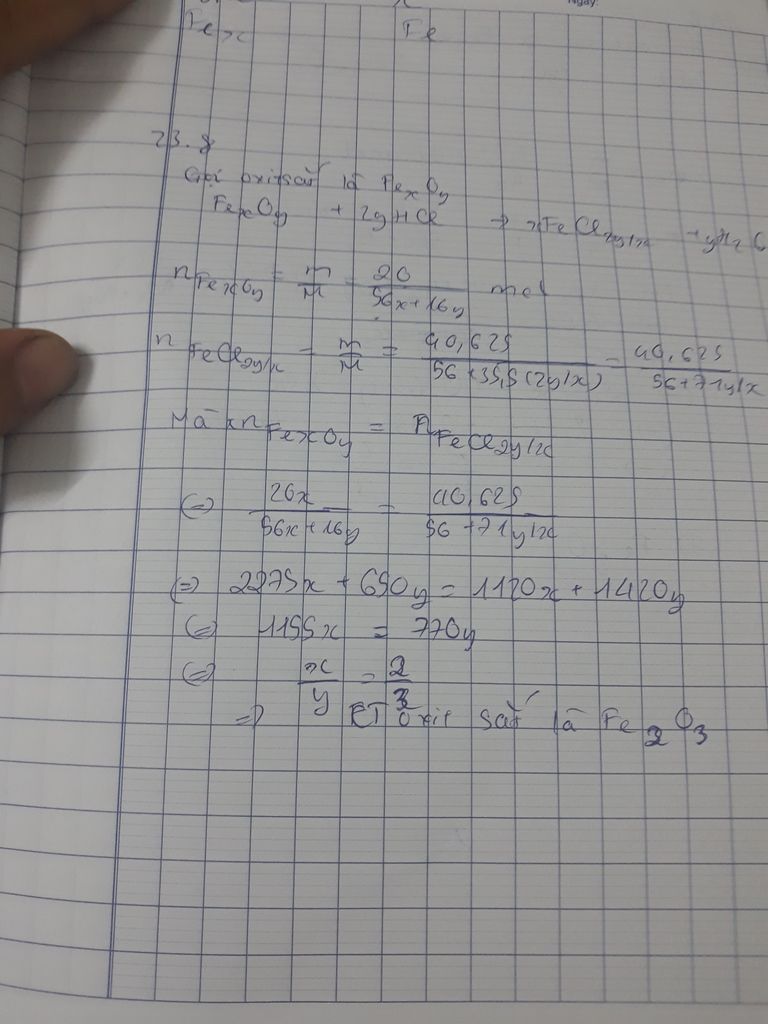 Ngày:
Fex Fe
23.8
Gọi oxit sắt là FexOy
FexOy + 2yHCl → xFeCl2y/x + yH2O
nFexOy = m/M = 20/(56x+16y) mol
nFeCl2y/x = m/M = 40,625/(56+35,5(2y/x)) = 40,625/(56+71y/x)
Mà xnFexOy = nFeCl2y/x
(=) 20x/(56x+16y) = 40,625/(56+71y/x)
(=) 2275x + 650y = 1120x + 1420y
(=) 1155x = 770y
(=) x/y = 2/3
=> CT oxit sắt là Fe2O3